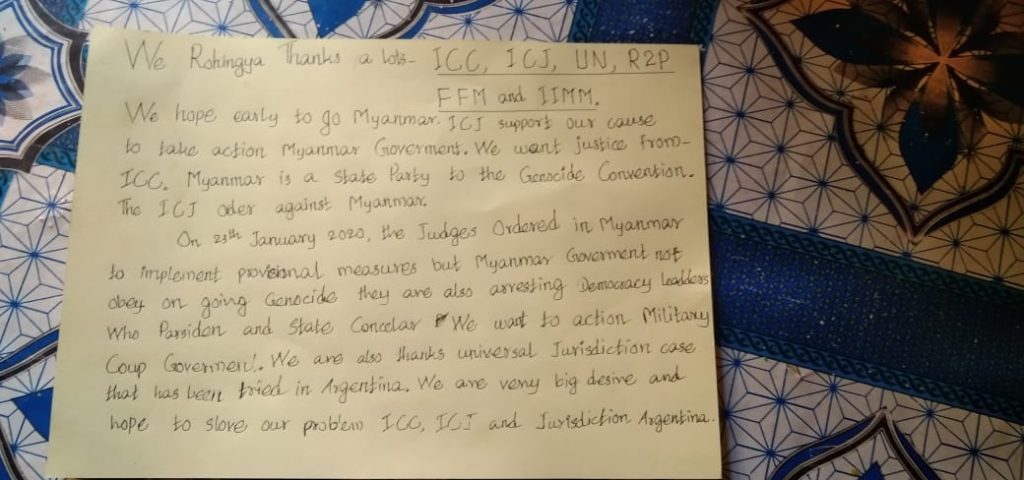 We Rohingya Thanks a lots- ICC, ICJ, UN, R2P
FFM and IIMM.
We hope early to go Myanmar. ICJ support our cause
to take action Myanmar Goverment. We want justice from-
ICC. Myanmar is a State Party to the Genocide Convention.
The ICJ oder against Myanmar.
On 23th January 2020, the Judges Ordered in Myanmar
to implement provisional measures but Myanmar Goverment not
obey on going Genocide they are also arresting Democracy leadders
Who Parsiden and State Concelar We want to action Military
Coup Goverment. We are also thanks universal Jurisdiction case
that has been tried in Argentina. We are veny big desire and
hope to slove our problem ICC, ICJ and Jurisdiction Argentina.